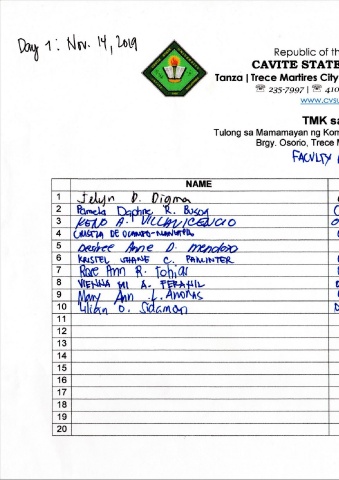 Day 1: Nov. 14, 2019
Republic of th
CAVITE STATE
Tanza | Trece Martires City
☏ 235-7997 | ☏ 410
www.cvsu
TMK sa
Tulong sa Mamamayan ng Kom
Brgy. Osorio, Trece M
FACULTY
NAME
1 Jelyn D. Digma
2 Pamela Daphne R. Busoy
3 KENO A. VILLAVICENCIO
4 CRISTIA DE OCAMPO-
5 Desiree Anne D. Mendoza
6 KRISTEL SHANE C. PAMINTER
7 Rose Ann R. Tobias
8 VIENNA MI A. FERANIL
9 Mary Ann L. Amoras
10 Lilian O. Sidamon
11
12
13
14
15
16
17
18
19
20